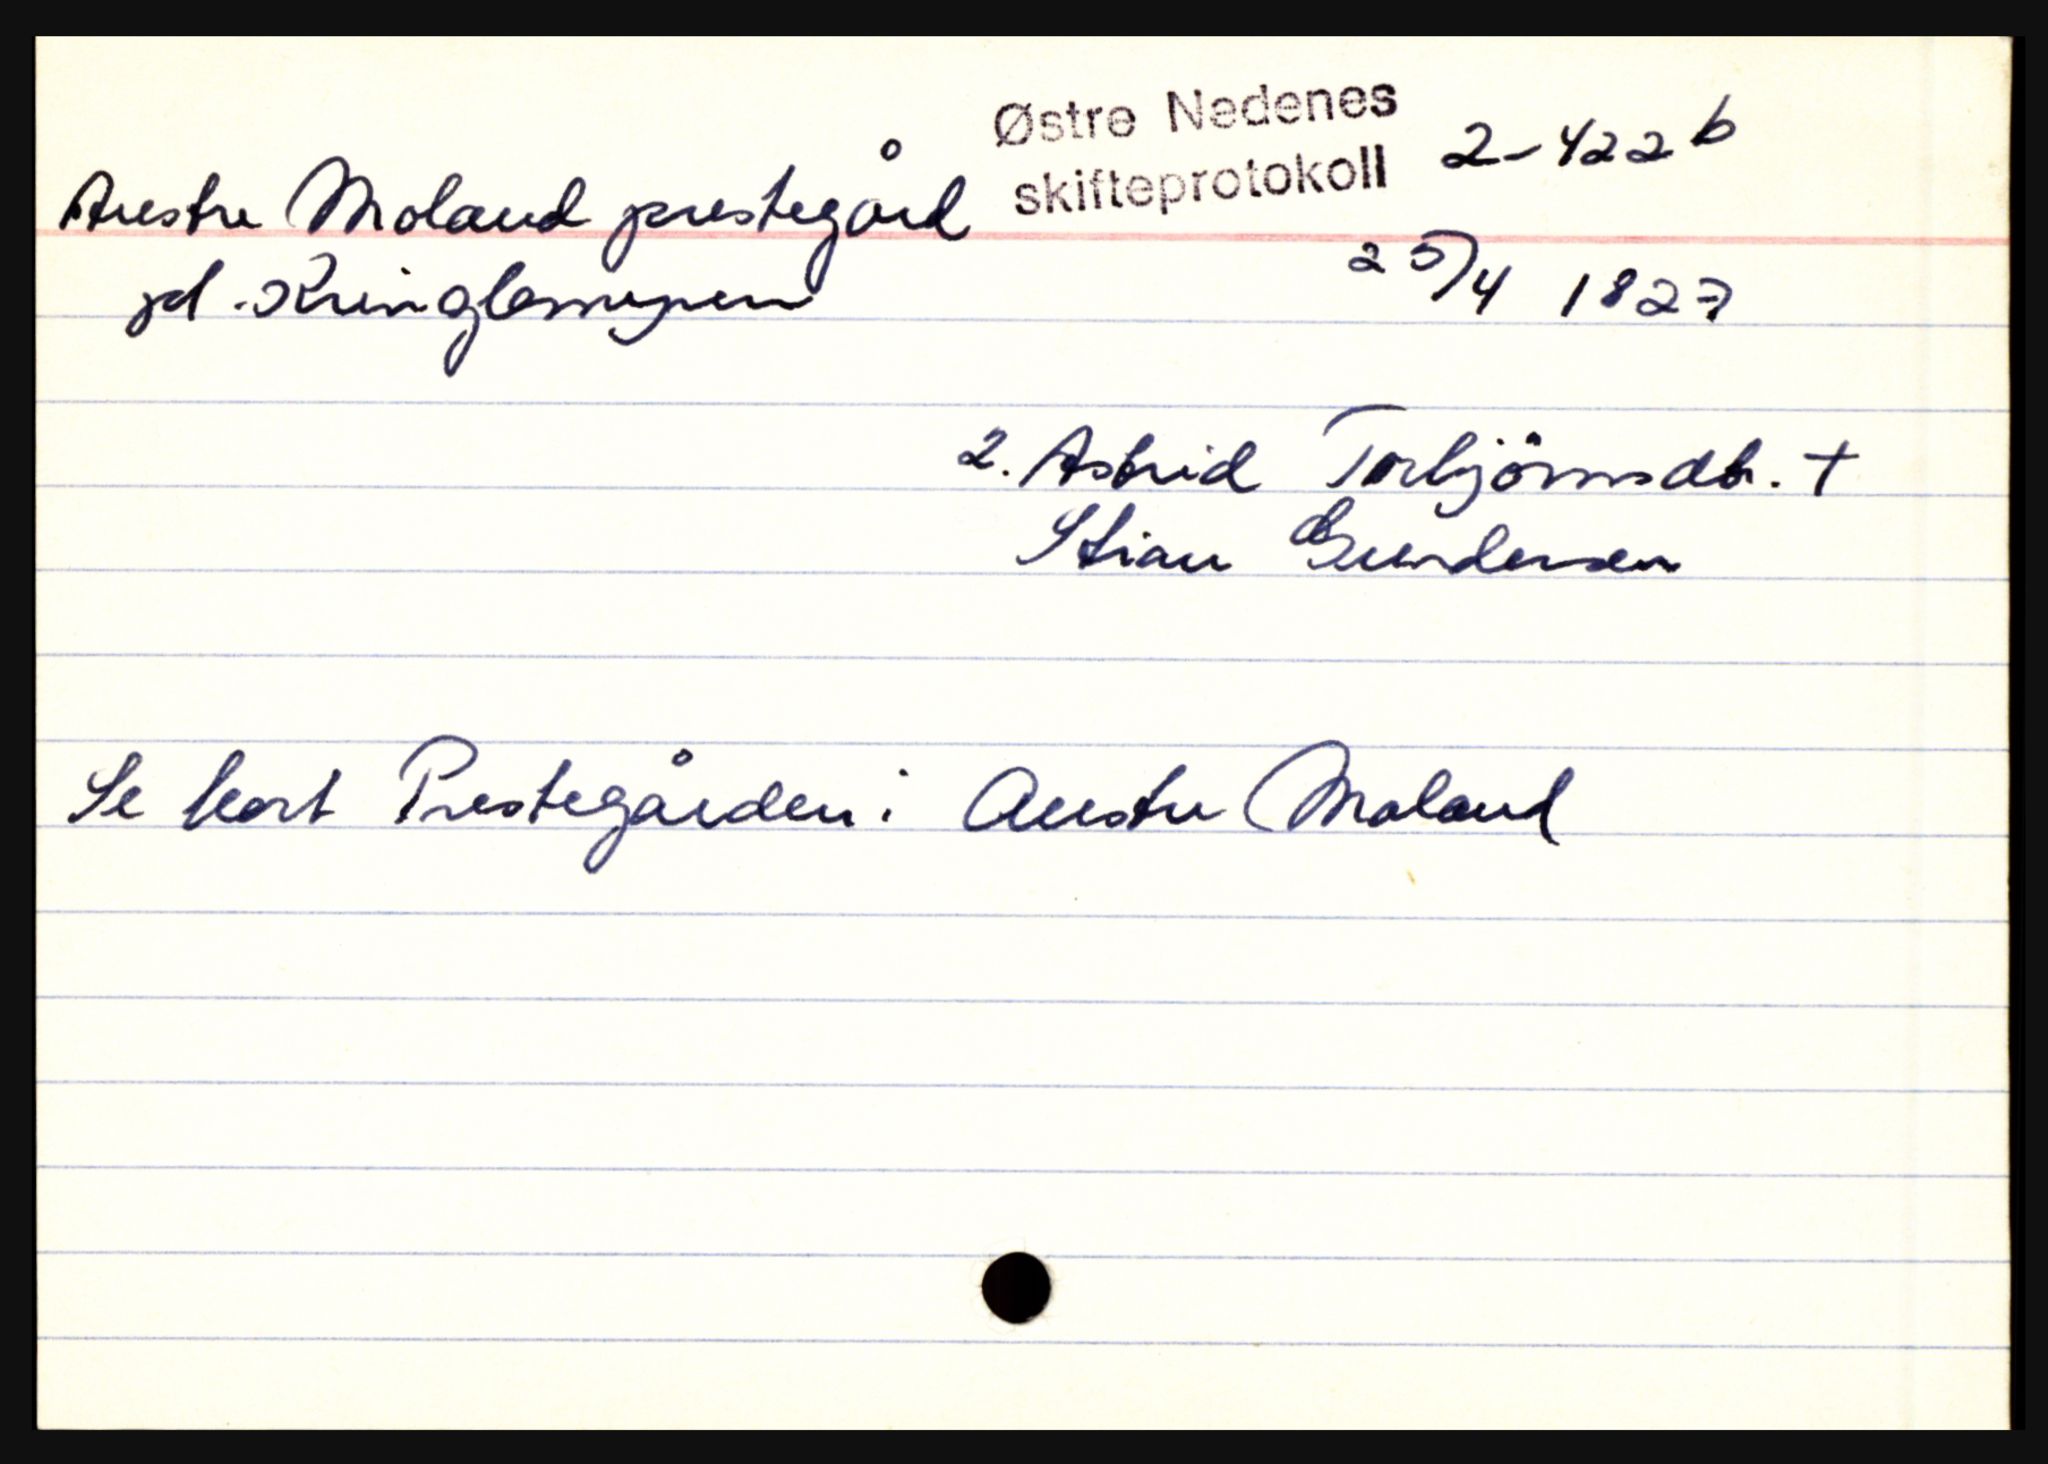 Østre Nedenes
skifteprotokoll 2-422 b
Austre Moland prestegård
pl. Kringlemyren
25/4 1827
2. Astrid Torbjörnsdtr. +
Stian Gundersen
Se kort Prestegården i Austre Moland